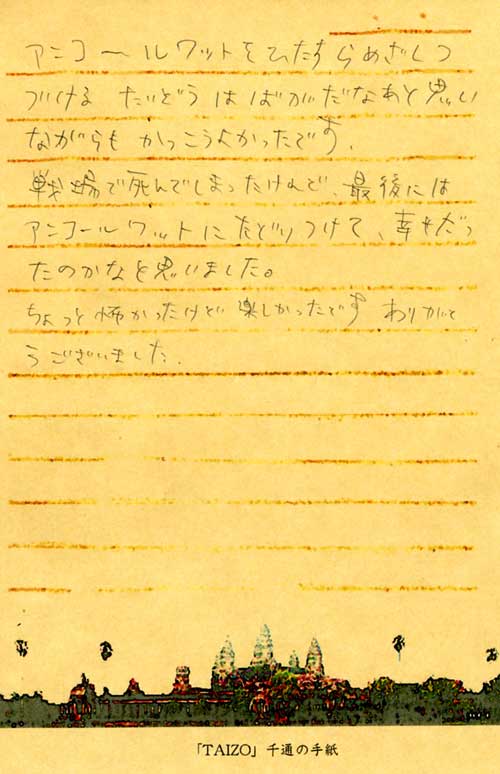 アンコールワットをひたすらめざしつ
づける たいぞうはばかだなあと思い
ながらもかっこうよかったです。
戦場で死んでしまったけれど、最後には
アンコールワットにたどりつけて、幸せだっ
たのかなと思いました。
ちょっと怖かったけど楽しかったです ありがと
うございました。
「TAIZO」千通の手紙